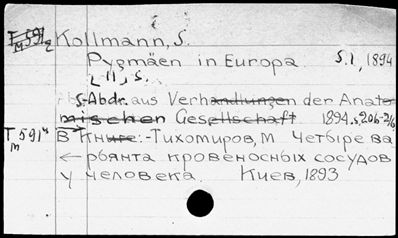 T 591 Kollmann, S.
M
Pygmäen in Europa. S.l, 1894
S-Abdr. aus Verhandlungen der Anato
mischen Gesellschaft 1894.s.206-216
T 591 В Книге:-Тихомиров, М Четыре ва
м
← рьянта кровеносных сосудов
у человека. Киев, 1893